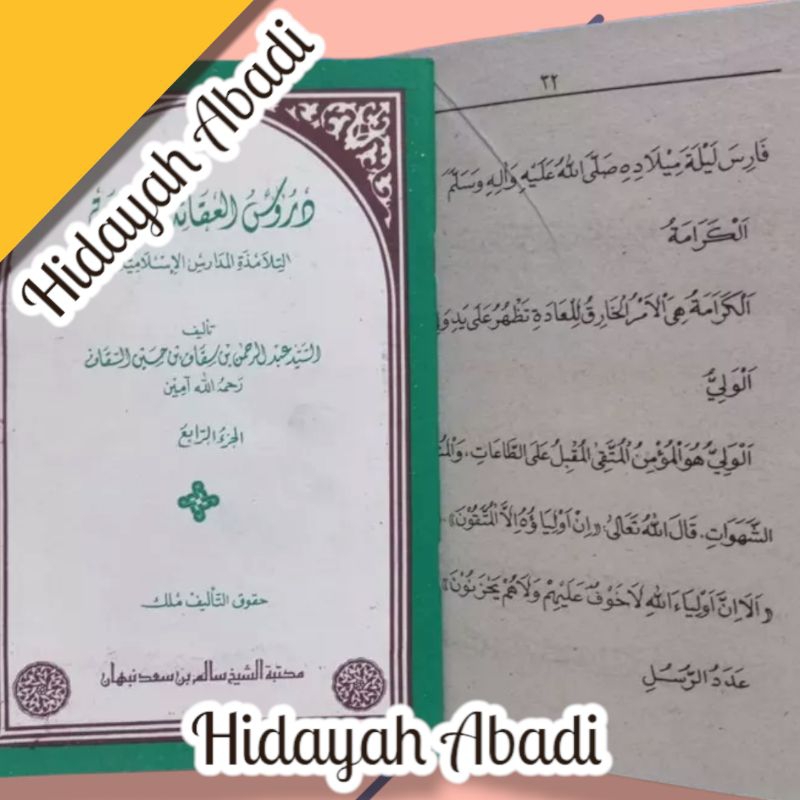 Hidayah Abadi
دُرُوسُ العَقَائد
لِتِلَامْذَةِ المَدَارِسِ الإِسْلَامِيَّة
تأليف
السَّيّد عبد الرحمن بن سقاف بن حسين السقاف
رَحِمَهُ الله آمين
الجزء الرّابع
حقوق التأليف ملك
مكتبة الشيخ سالم بن سعد نبهان
٣٢
فَارِسَ لَيْلَةَ مِيْلَادِهِ صَلَّى اللهُ عَلَيْهِ وَآلِهِ وَسَلَّمَ
اَلْكَرَامَةُ
اَلْكَرَامَةُ هِيَ الْاَمْرُ الْخَارِقُ لِلْعَادَةِ تَظْهَرُ عَلَى يَدِ
اَلْوَلِيُّ
اَلْوَلِيُّ هُوَ الْمُؤْمِنُ الْمُتَّقِى الْمُقْبِلُ عَلَى الطَّاعَاتِ،
الشَّهَوَاتِ. قَالَ اللهُ تَعَالَى: «اِنْ اَوْلِيَاؤُهُ اِلَّا الْمُتَّقُوْنَ».
«اَلَا اِنَّ اَوْلِيَاءَ اللهِ لَا خَوْفٌ عَلَيْهِمْ وَلَا هُمْ يَحْزَنُوْنَ»
عَدَدُ الرُّسُلِ
Hidayah Abadi